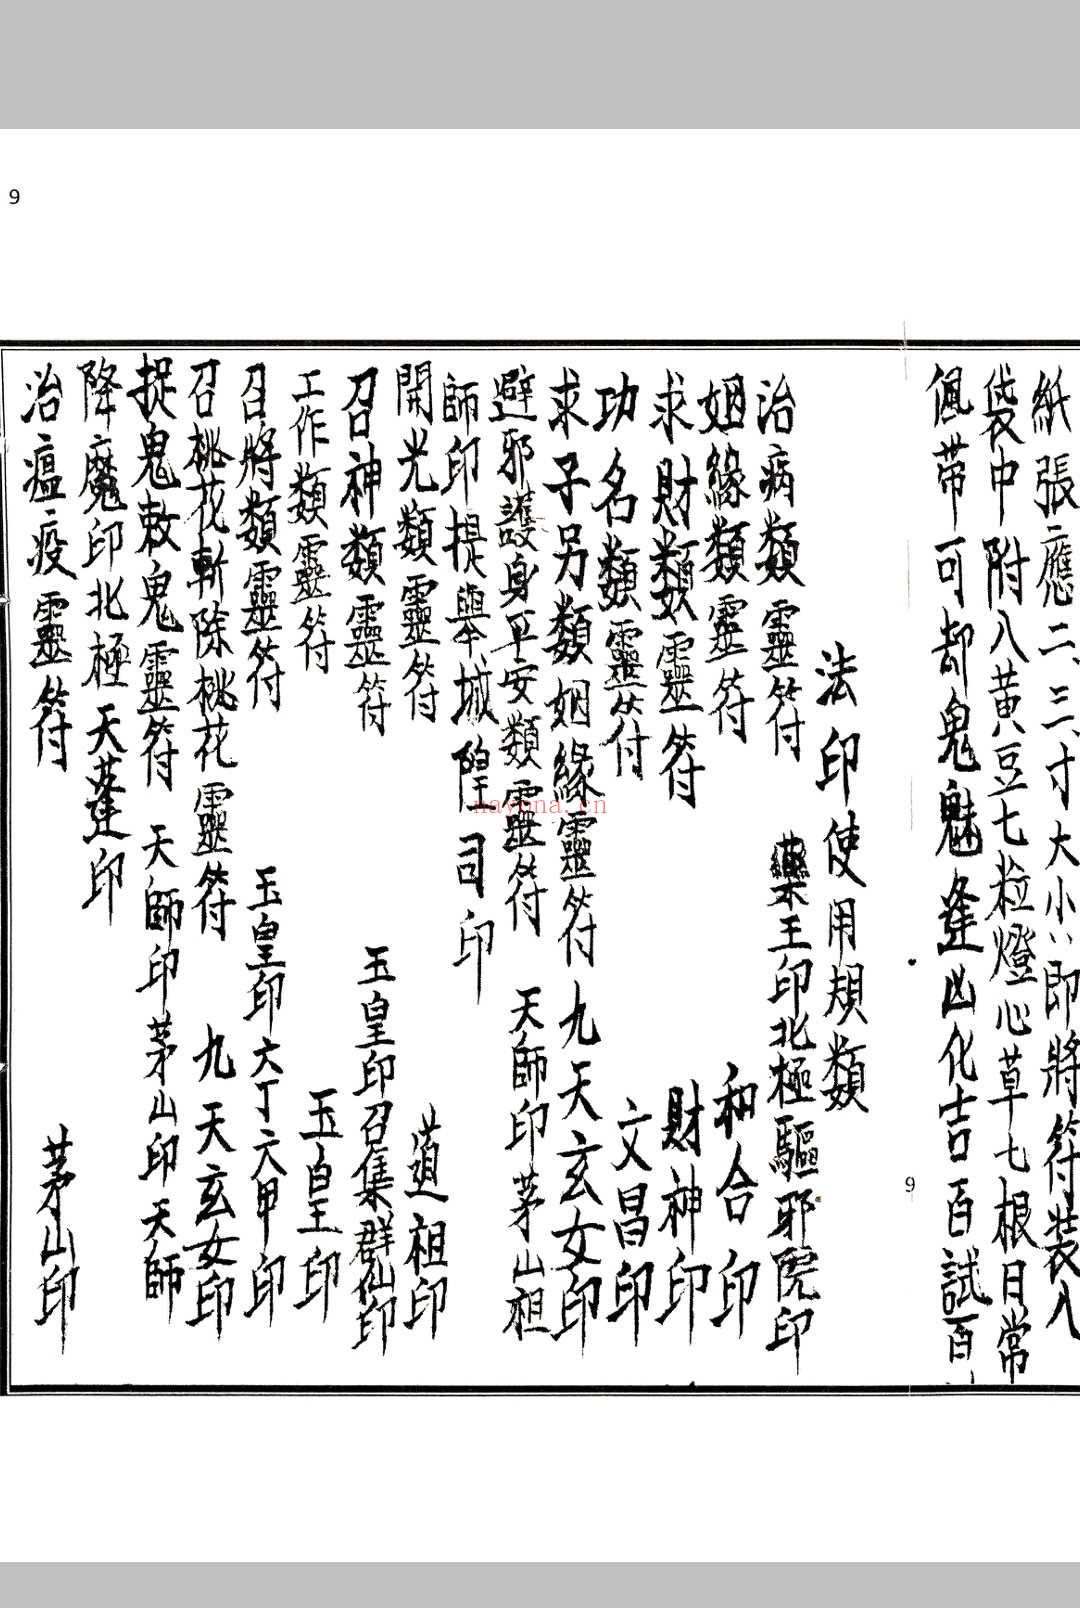 9
紙張應二、三、寸大小、即將符裝入
袋中附八黃豆七粒燈心草七根日常
佩帶可却鬼魅逢凶化吉百試百
法印使用規類
治病類靈符 藥王印北極驅邪院印
姻緣類靈符 和合印
求財類靈符 財神印
功名類靈符 文昌印
求子另類姻緣靈符 九天玄女印
避邪護身平安類靈符 天師印茅山祖
師印提舉城隍司印
開光類靈符 道祖印
召神類靈符 玉皇印召集群仙印
工作類靈符 玉皇印
召將類靈符 玉皇印六丁六甲印
召桃花斬除桃花靈符 九天玄女印
捉鬼敕鬼靈符 天師印茅山印天師
降魔印北極天蓬印
治瘟疫靈符 茅山印
9
nayona.cn